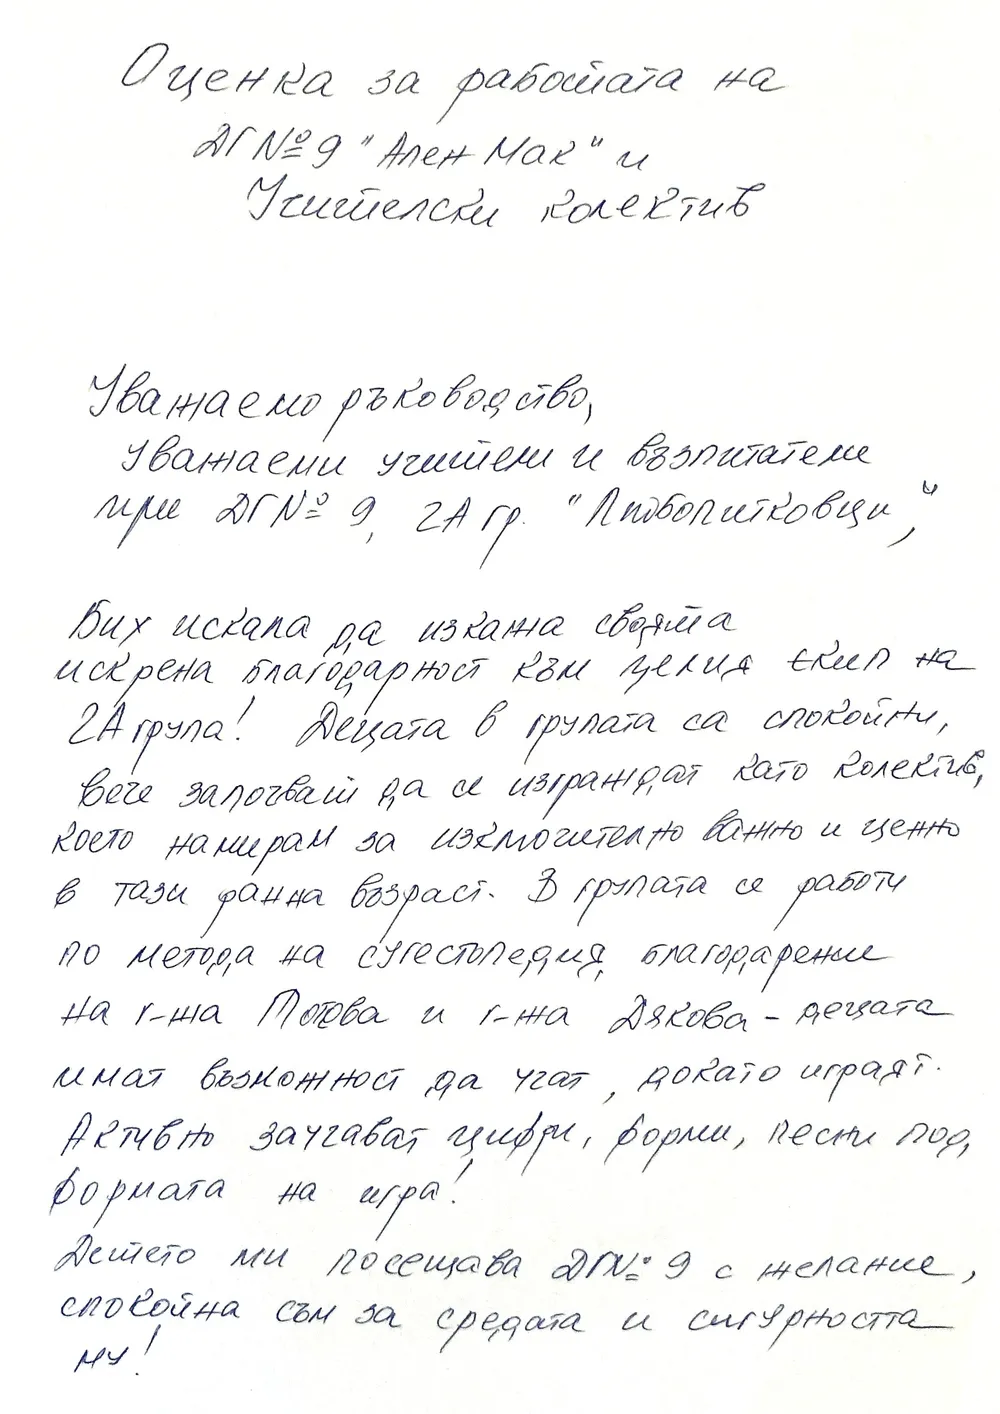 Оценка за работата на
ДГ№9 "Ален Мак" и
Учителски колектив
Уважаемо ръководство,
Уважаеми учители и възпитатели
при ДГ№ 9, 2А гр. "Любопитковци",
Бих искала да изкажа своята
искрена благодарност към целия екип на
2А група! Децата в групата са спокойни,
вече започват да се изграждат като колектив,
което намирам за изключително важно и ценно
в тази ранна възраст. В групата се работи
по метода на сугестопедия, благодарение
на г-жа Тотева и г-жа Дякова - децата
имат възможност да учат, докато играят.
Активно заучават цифри, форми, песни под
формата на игра!
Детето ми посещава ДГ№ 9 с желание,
спокойна съм за средата и сигурността
му!